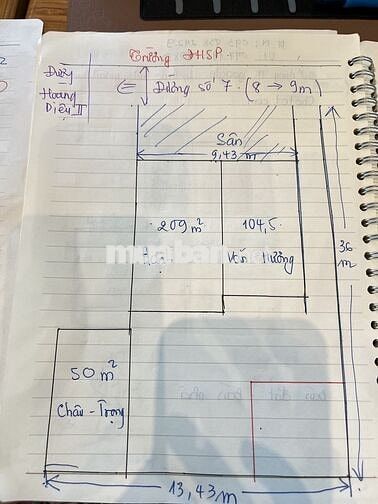 Trường ĐHSP
Đường
Hoàng
Diệu II
Đường số 7 : (8 → 9m)
Sân
9,43 m
209 m²
104,5
Văn Hường
36
m
muaban.net
50 m²
Châu - Trọng
13,43 m